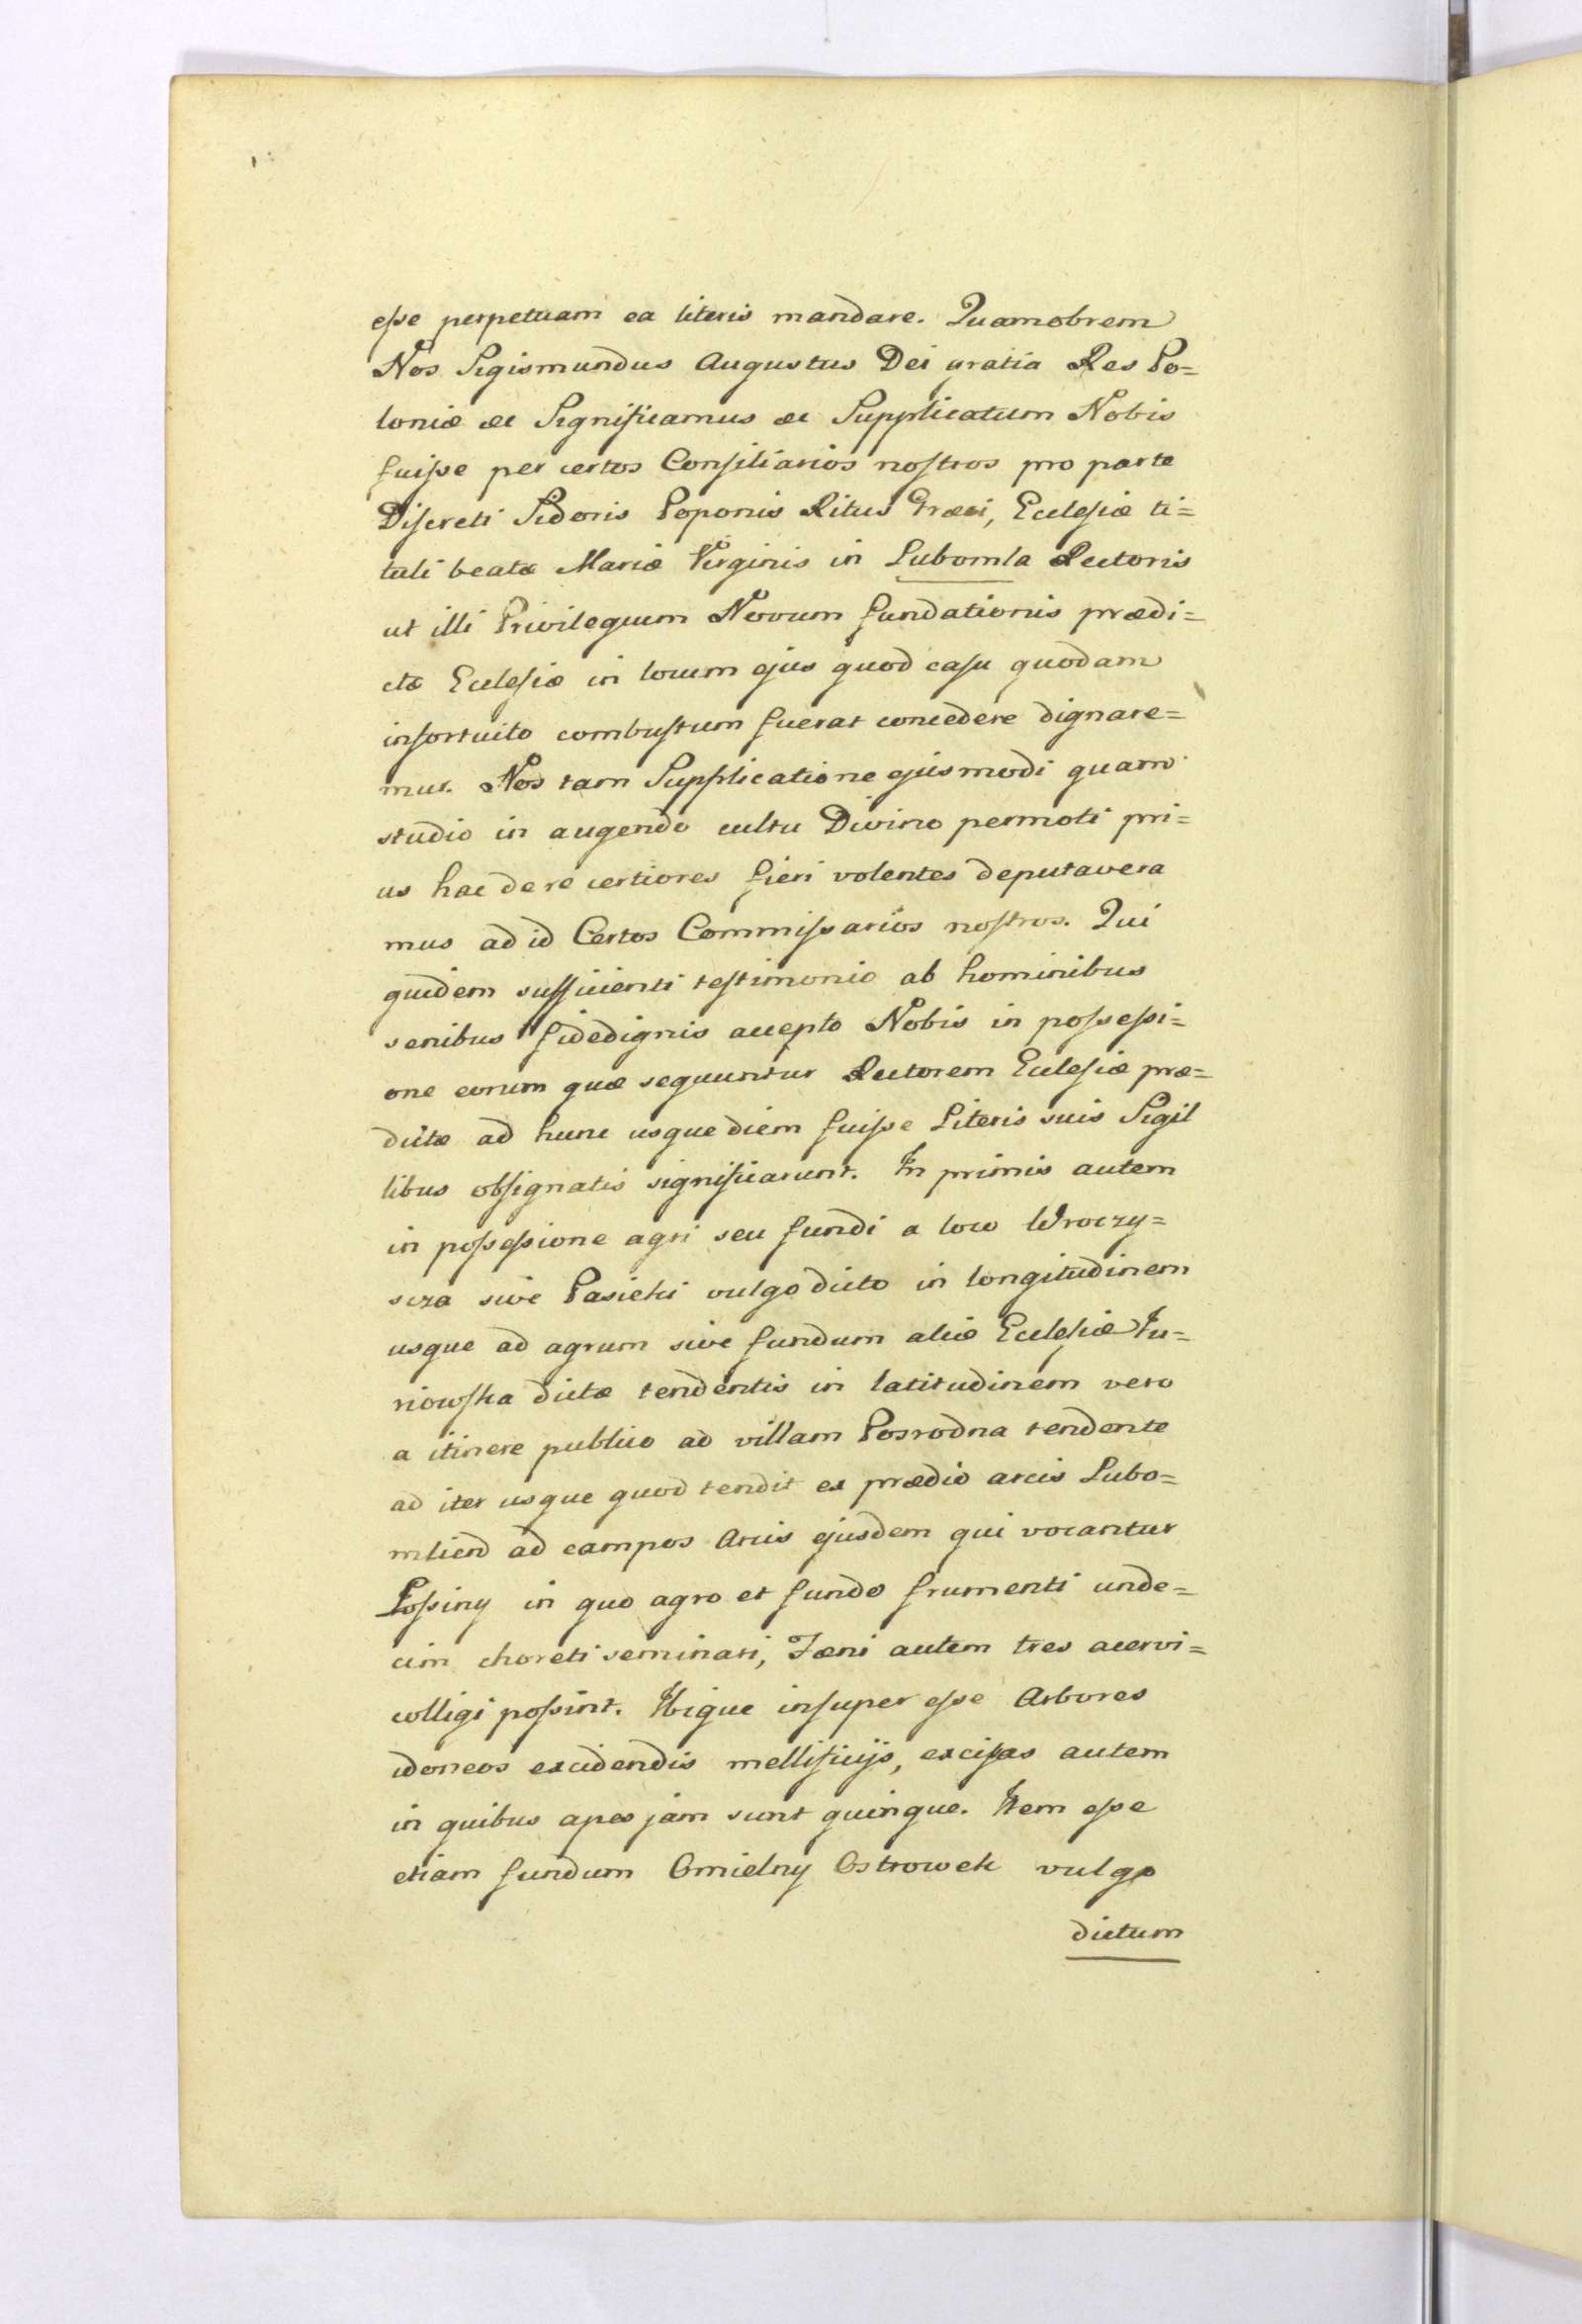 eſse perpetuam ea literis mandare. Quamobrem
Nos Sigismundus Augustus Dei gratia Rex Po=
loniæ &c Significamus &c Supplicatum Nobis
fuiſse per certos Conſiliarios noſtros pro parte
Diſcreti Sidoris Poponis Ritus Græci, Eccleſiæ ti=
tuli beatæ Mariæ Virginis in Lubomla Rectoris
ut illi Privilegium Novum fundationis prædi=
ctæ Eccleſiæ in locum ejus quod caſu quodam
infortuito combuſtum fuerat concedere dignare=
mur. Nos tam Supplicatione ejusmodi quam
studio in augendo cultu Divino permoti pri=
us hac de re certiores fieri volentes deputavera
mus ad id Certos Commiſsarios noſtros. Qui
quidem sufficienti teſtimonio ab hominibus
senibus fidedignis accepto Nobis in poſseſsi=
one eorum quæ sequuntur Rectorem Eccleſiæ præ=
dictæ ad hunc usque diem fuiſse Literis suis Sigil
libus obſignatis significarunt. In primis autem
in poſseſsione agri seu fundi a loco Wroczy=
scza sive Pasieki vulgo dicto in longitudinem
usque ad agrum sive fundum aliæ Eccleſiæ Iu=
riowſka dictæ tendentis in latitudinem vero
a itinere publico ad villam Posrodna tendente
ad iter usque quod tendit ex prædio arcis Lubo=
mlien ad campos Arcis ejusdem qui vocantur
Loſsiny in quo agro et fundo frumenti unde=
cim choreti seminari, Fæni autem tres acervi=
colligi poſsint. Ibique inſuper eſse Arbores
idoneos excidendis mellificijs, exciſas autem
in quibus apes jam sunt quinque. Item eſse
etiam fundum Omielny Ostrowek vulgo
dictum